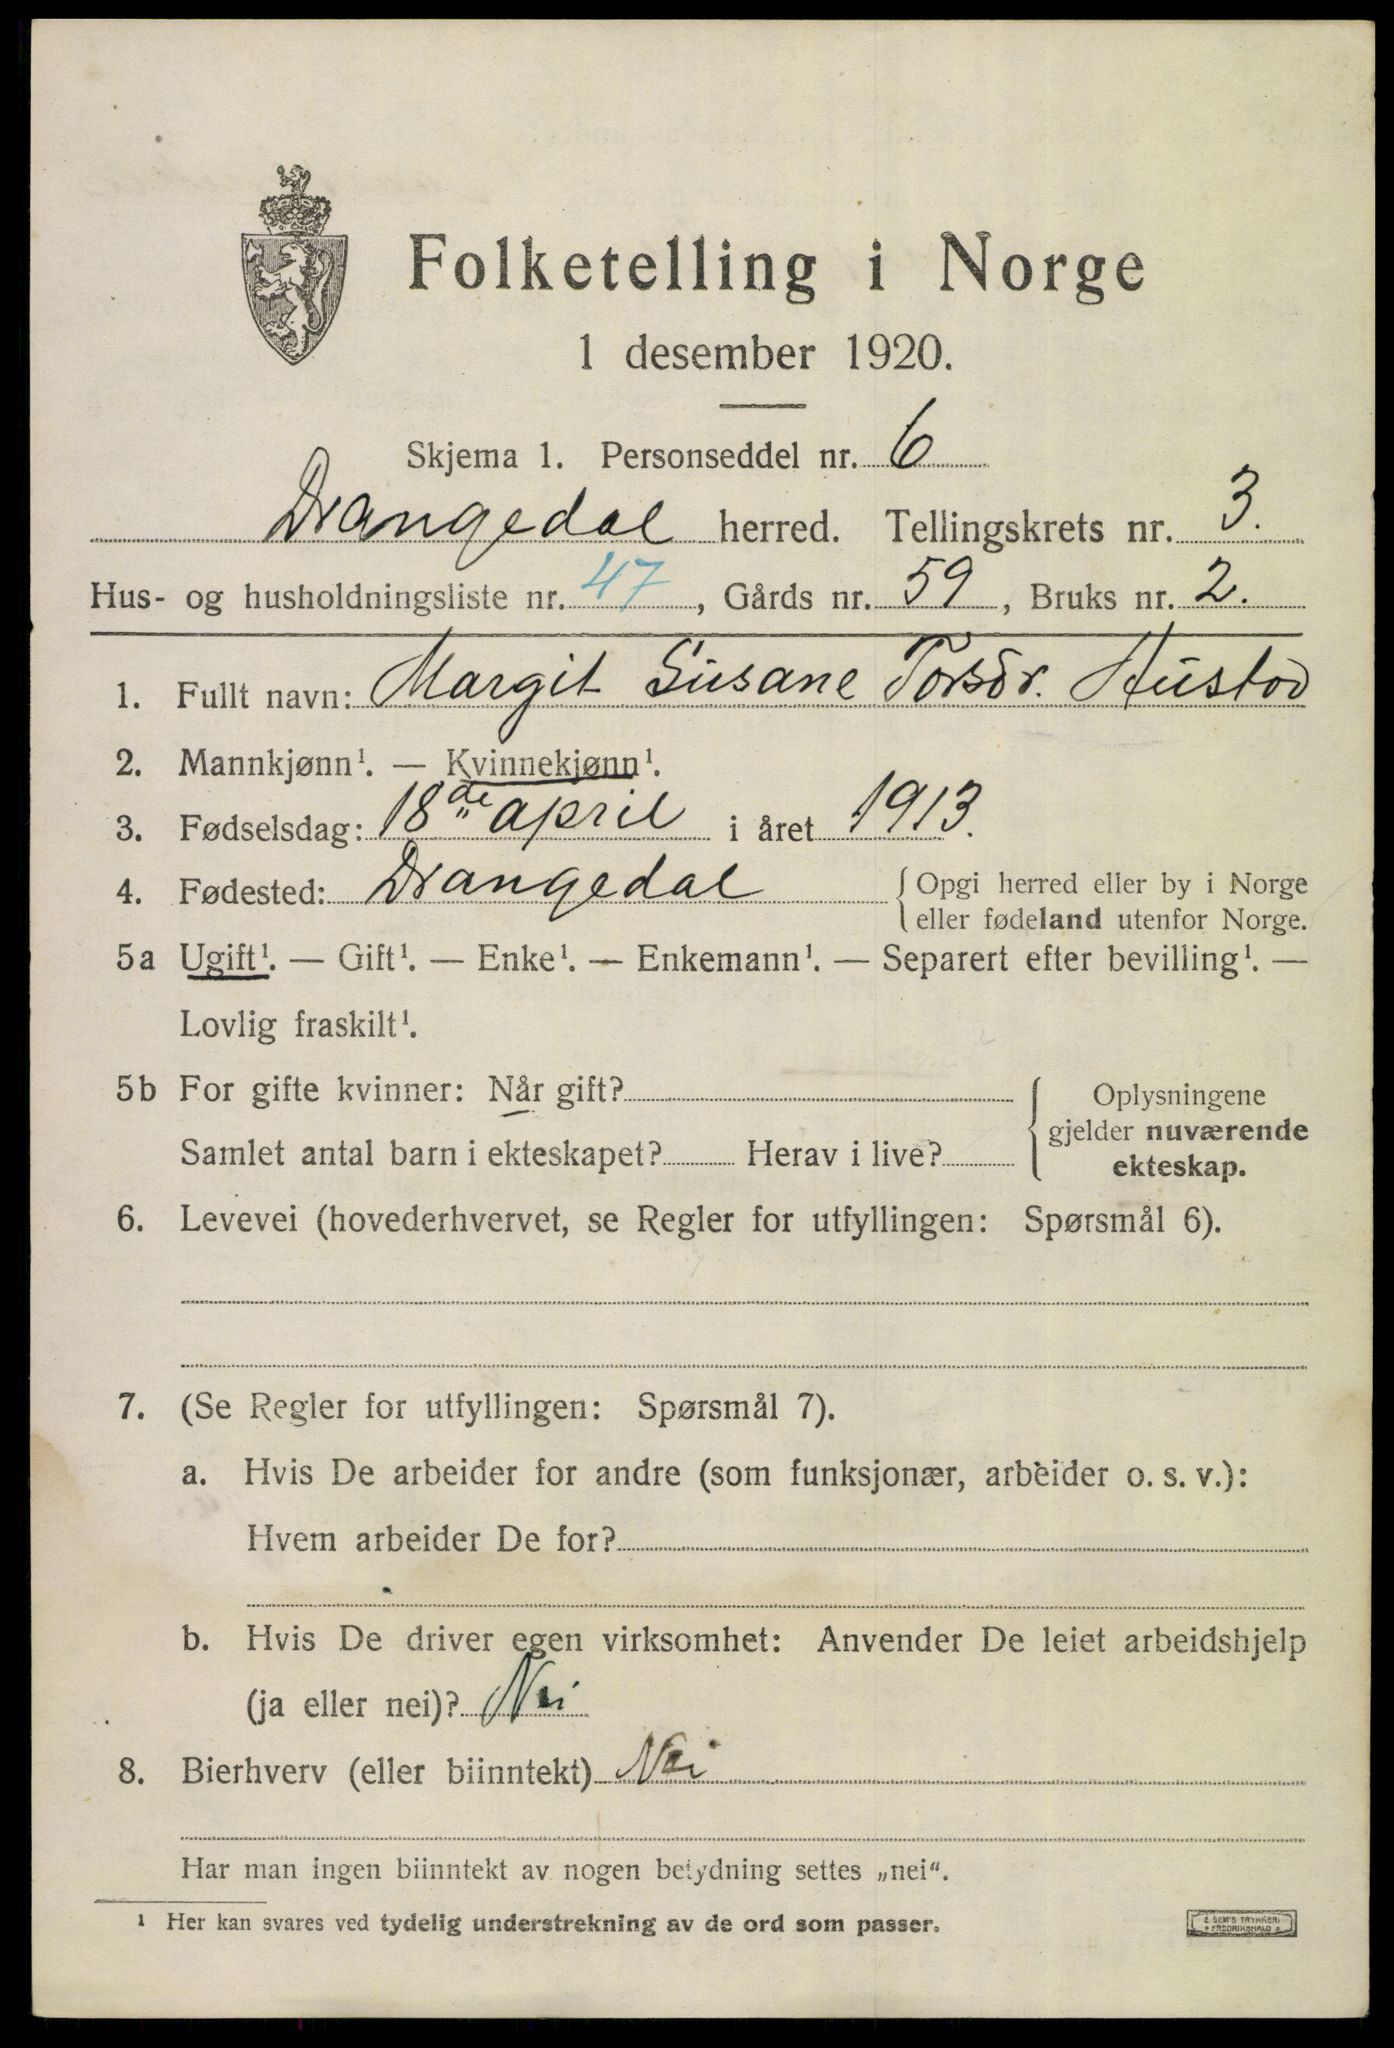 Folketelling i Norge
1 desember 1920.
Skjema 1. Personseddel nr. 6
Drangedal herred. Tellingskrets nr. 3.
Hus- og husholdningsliste nr. 47, Gårds nr. 59, Bruks nr. 2.
1. Fullt navn: Margit Susane Torsdr. Hustod
2. Mannkjønn¹. — Kvinnekjønn¹.
3. Fødselsdag: 18de april i året 1913.
4. Fødested: Drangedal { Opgi herred eller by i Norge
eller fødeland utenfor Norge.
5a Ugift¹. — Gift¹. — Enke¹. — Enkemann¹. — Separert efter bevilling¹. —
Lovlig fraskilt¹.
5b For gifte kvinner: Når gift?
Samlet antal barn i ekteskapet? Herav i live?
Oplysningene
gjelder nuværende
ekteskap.
6. Levevei (hovederhvervet, se Regler for utfyllingen: Spørsmål 6).
7. (Se Regler for utfyllingen: Spørsmål 7).
a. Hvis De arbeider for andre (som funksjonær, arbeider o. s. v.):
Hvem arbeider De for?
b. Hvis De driver egen virksomhet: Anvender De leiet arbeidshjelp
(ja eller nei)? Nei
8. Bierhverv (eller biinntekt) Nei
Har man ingen biinntekt av nogen betydning settes „nei“.
¹ Her kan svares ved tydelig understrekning av de ord som passer.
E. SEM'S TRYKKERI
FREDRIKSHALD